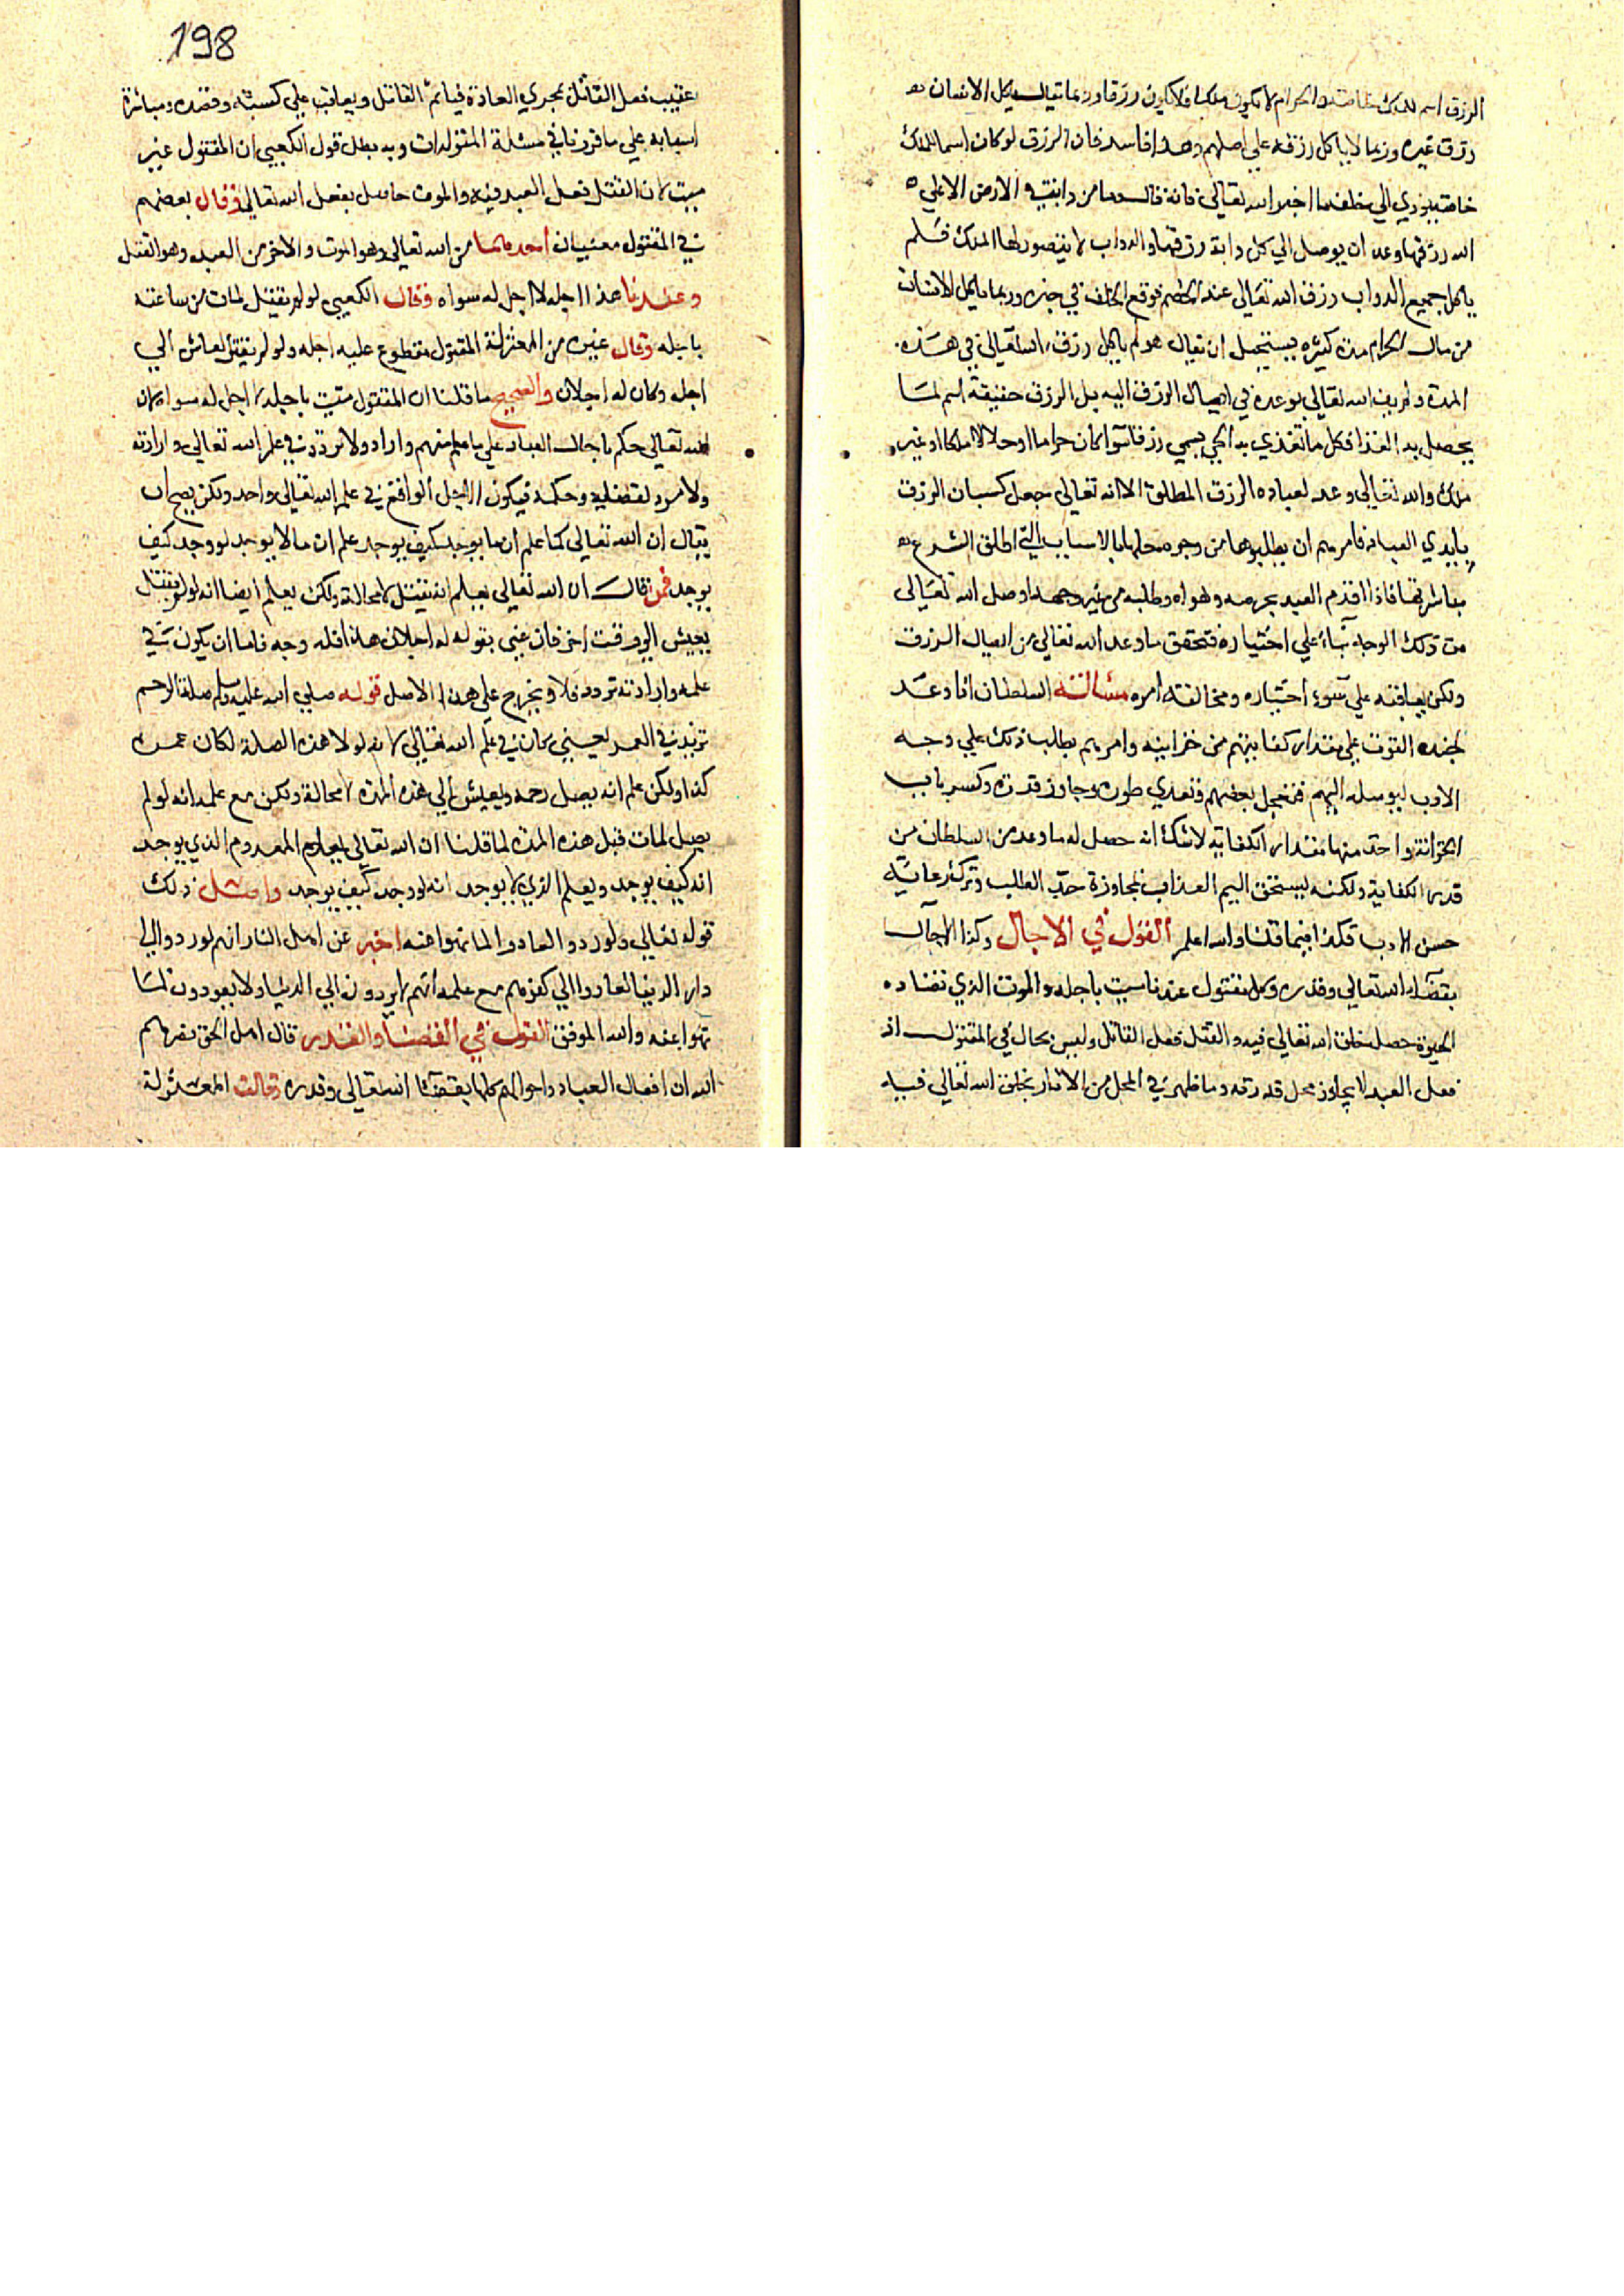 الرزق اسم للملك خاصة والحرام لا يكون ملكا فلا يكون رزقا وربما يتال ياكل الانسان
رزق غيره وربما لا ياكل رزقه علي اصلهم وهذا فاسد فان الرزق لو كان اسما للملك
خاصة يودي الي خلف ما اخبر الله تعالي فانه قال وما من دابة في الارض الا علي
الله رزقها وعد ان يوصل الي كل دابة رزقها والدواب لا يتصور لها الملك فلم
ياكل جميع الدواب رزق الله تعالى عند الخصم فوقع الخلف في خبره وربما ياكل الانسان
من مال الحرام مدة كثيره فيستحيل ان يقال هو لم ياكل رزق الله تعالى في هذه
المدة ولم يف الله تعالي بوعده في ايصال الرزق اليه بل الرزق حقيقة اسم لما
يحصل به الغذا فكل ما تغذي به الحي يسمي رزقا سوا كان حراما او حلالا ملكا او غير
ملك والله تعالي وعد لعباده الرزق المطلق الا انه تعالى جعل كسبان الرزق
بايدي العباد فامرهم ان يطلبوها من وجوه حلها بالاسباب التي اطلق الشرع
مباشرتها فاذا اقدم العبد بحرصه وهواه وطلبه من غير وجهه اوصل الله تعالى
من ذلك الوجه بناء علي اختياره فتحقق ما وعد الله تعالي من ايصال الرزق
ولكن يعاقبه علي سوء اختياره ومخالفته امره مثاله السلطان اذا وعد
لجنده القوت علي مقدار كفايتهم من خزاينه وامرهم بطلب ذلك علي وجه
الادب ليوصله اليهم فعجل بعضهم وتعدي طوره وجاوز قدره وكسر باب
الخزانة واخذ منها مقدار الكفاية لا شك انه حصل له ما وعد من السلطان من
قدر الكفاية ولكنه يستحق اليم العذاب لمجاوزة حد الطلب وترك رعاية
حسن الادب فكذا فيما قلنا والله اعلم القول في الاجال وكذا الاجال
بقضاء الله تعالي وقدره وكل مقتول عندنا ميت باجله والموت الذي تضاده
الحيوة حصل بخلق الله تعالي فيه والقتل فعل القاتل وليس بحال في المقتول اذ
فعل العبد لا يجاوز محل قدرته وما ظهر في المحل من الاثار بخلق الله تعالي فيه
198
عقيب فعل القاتل بمجري العادة فياثم القاتل ويعاقب علي كسبه وقصده ومباشرة
اسبابه علي ما قررنا في مسئلة المتولدات وبه بطل قول الكعبي ان المقتول غير
ميت لان القتل فعل العبد فيه والموت حاصل بفعل الله تعالي وقال بعضهم
في المقتول معنيان احدهما من الله تعالي وهو الموت والاخر من العبد وهو القتل
وعندنا هذا اجله لا اجل له سواه وقال الكعبي لو لم يقتل لمات من ساعته
باجله وقال غيره من المعتزلة المقتول مقطوع عليه اجله ولو لم يقتل لعاش الي
اجله وكان له اجلان والصحيح ما قلنا ان المقتول ميت باجله لا اجل له سواه لان
الله تعالي حكم باجال العباد علي ما علم منهم واراد ولا تردد في علم الله تعالي وارادته
ولا مرد لقضايه وحكمه فيكون الاجل الواقع في علم الله تعالي واحد ولكن يصح ان
يقال ان الله تعالي كما علم ان ما يوجد كيف يوجد علم ان ما لا يوجد لو وجد كيف
يوجد فمن قال ان الله تعالي يعلم انه يقتل لا محالة ولكن يعلم ايضا انه لو لم يقتل
يعيش الي وقت اخر فان عني بقوله له اجلان هذا فله وجه فاما ان يكون في
علمه وارادته تردد فلا ويخرج علي هذا الاصل قوله صلي الله عليه وسلم صلة الرحم
تزيد في العمر يعني كان في علم الله تعالي لانه لولا هذه الصلة لكان عمره
كذا ولكن علم انه يصل رحمه ويعيش الي هذه المدة لا محالة ولكن مع علمه انه لو لم
يصل لمات قبل هذه المدة لما قلنا ان الله تعالي يعلم المعدوم الذي يوجد
انه كيف يوجد ويعلم الذي لا يوجد انه لو وجد كيف يوجد وامثل ذلك
قوله تعالي ولو ردوا لعادوا لما نهوا عنه اخبر عن اهل النار انهم لو ردوا الي
دار الدنيا لعادوا الي كفرهم مع علمه انهم لا يردون الي الدنيا ولا يعودون لما
نهوا عنه والله الموفق القول في القضا والقدر قال اهل الحق نصرهم
الله ان افعال العباد واحوالهم كلها بقضا الله تعالي وقدره وقالت المعتزلة